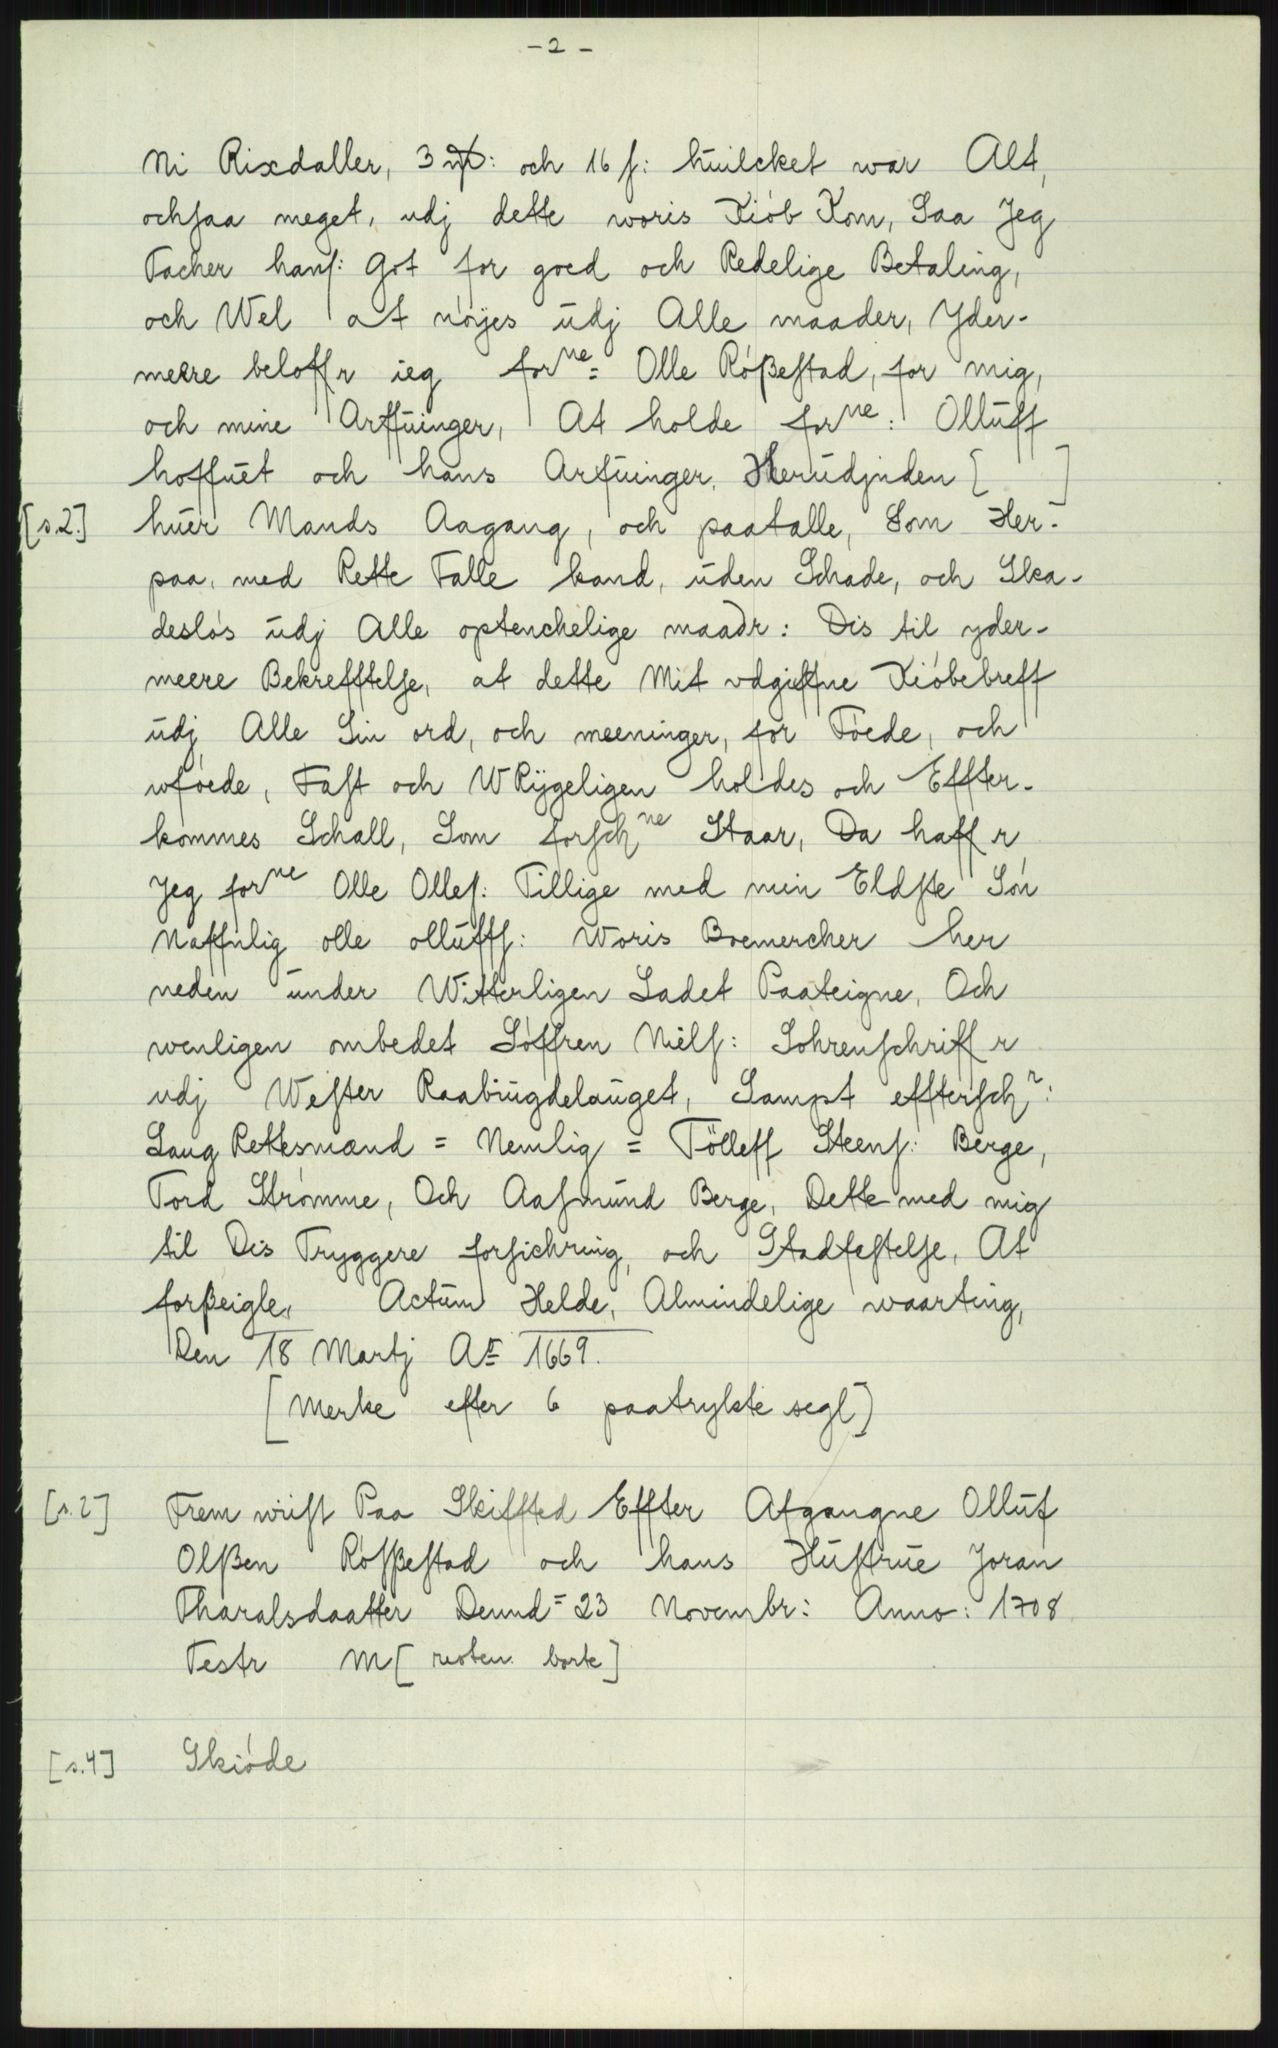 - 2 -
Ni Rixdaller, 3 och 16 ſ: huilcket war Alt,
ochſaa meget, udj dette woris Kiób Kom, Saa Jeg
Tacher hanſ: Got for goed och Redelige Betaling,
och Wel at nóyes udj Alle maader, Yder-
meere beloffr ieg forne= Olle Róßeſtad, for mig,
och mine Arffuinger, At holde forne: Olluff
hoffuet och hans Arfuinger. Herudjnden [ ]
[s.2.] huer Mands Aagang, och paatalle, Som Her-
paa, med Rette Talle kand, uden Schade, och Ska-
deslós udj Alle optenckelige maadr: Dis til yder-
meere Bekrefftelſe, at dette Mit vdgiffne Kióbebreff
udj Alle Sin ord, och meeninger, for Fóede, och
wfóede, Faſt och WRygeligen holdes och Effter-
kommes Schall, Som forſchne Staar, Da haffr
Jeg forne Olle Olleſ: Tillige med min Eldſte Són
Naffnlig olle olluffſ: Woris Boemercher her
neden under Witterligen Ladet Paateigne, Och
wenligen ombedet Sóffren Nielſ: Sohrenſchriffr
udj Weſter Raabiugdelauget, Sampt effterſchr:
Laug Rettesmænd = Nemlig = Tólleff Steenſ: Berge,
Tord Strómme, Och Aaſmund Berge, Dette med mig
til Dis Tryggere forſichring, och Stadfeſtelſe, At
forßeigle, Actum Helde, Almindelige waarting,
Den 18 Martj Ao 1669.
[Merke efter 6 paatrykte segl]
[s.2] Frem wiiſt Paa Skiffted Effter Afgangne Olluf
Olßen Róſßeſtad och hans Huſtrue Joran
Tharalsdaatter Dennd= 23 Novembr: Anno: 1708
Testr M [resten borte]
[s.4] Skióde